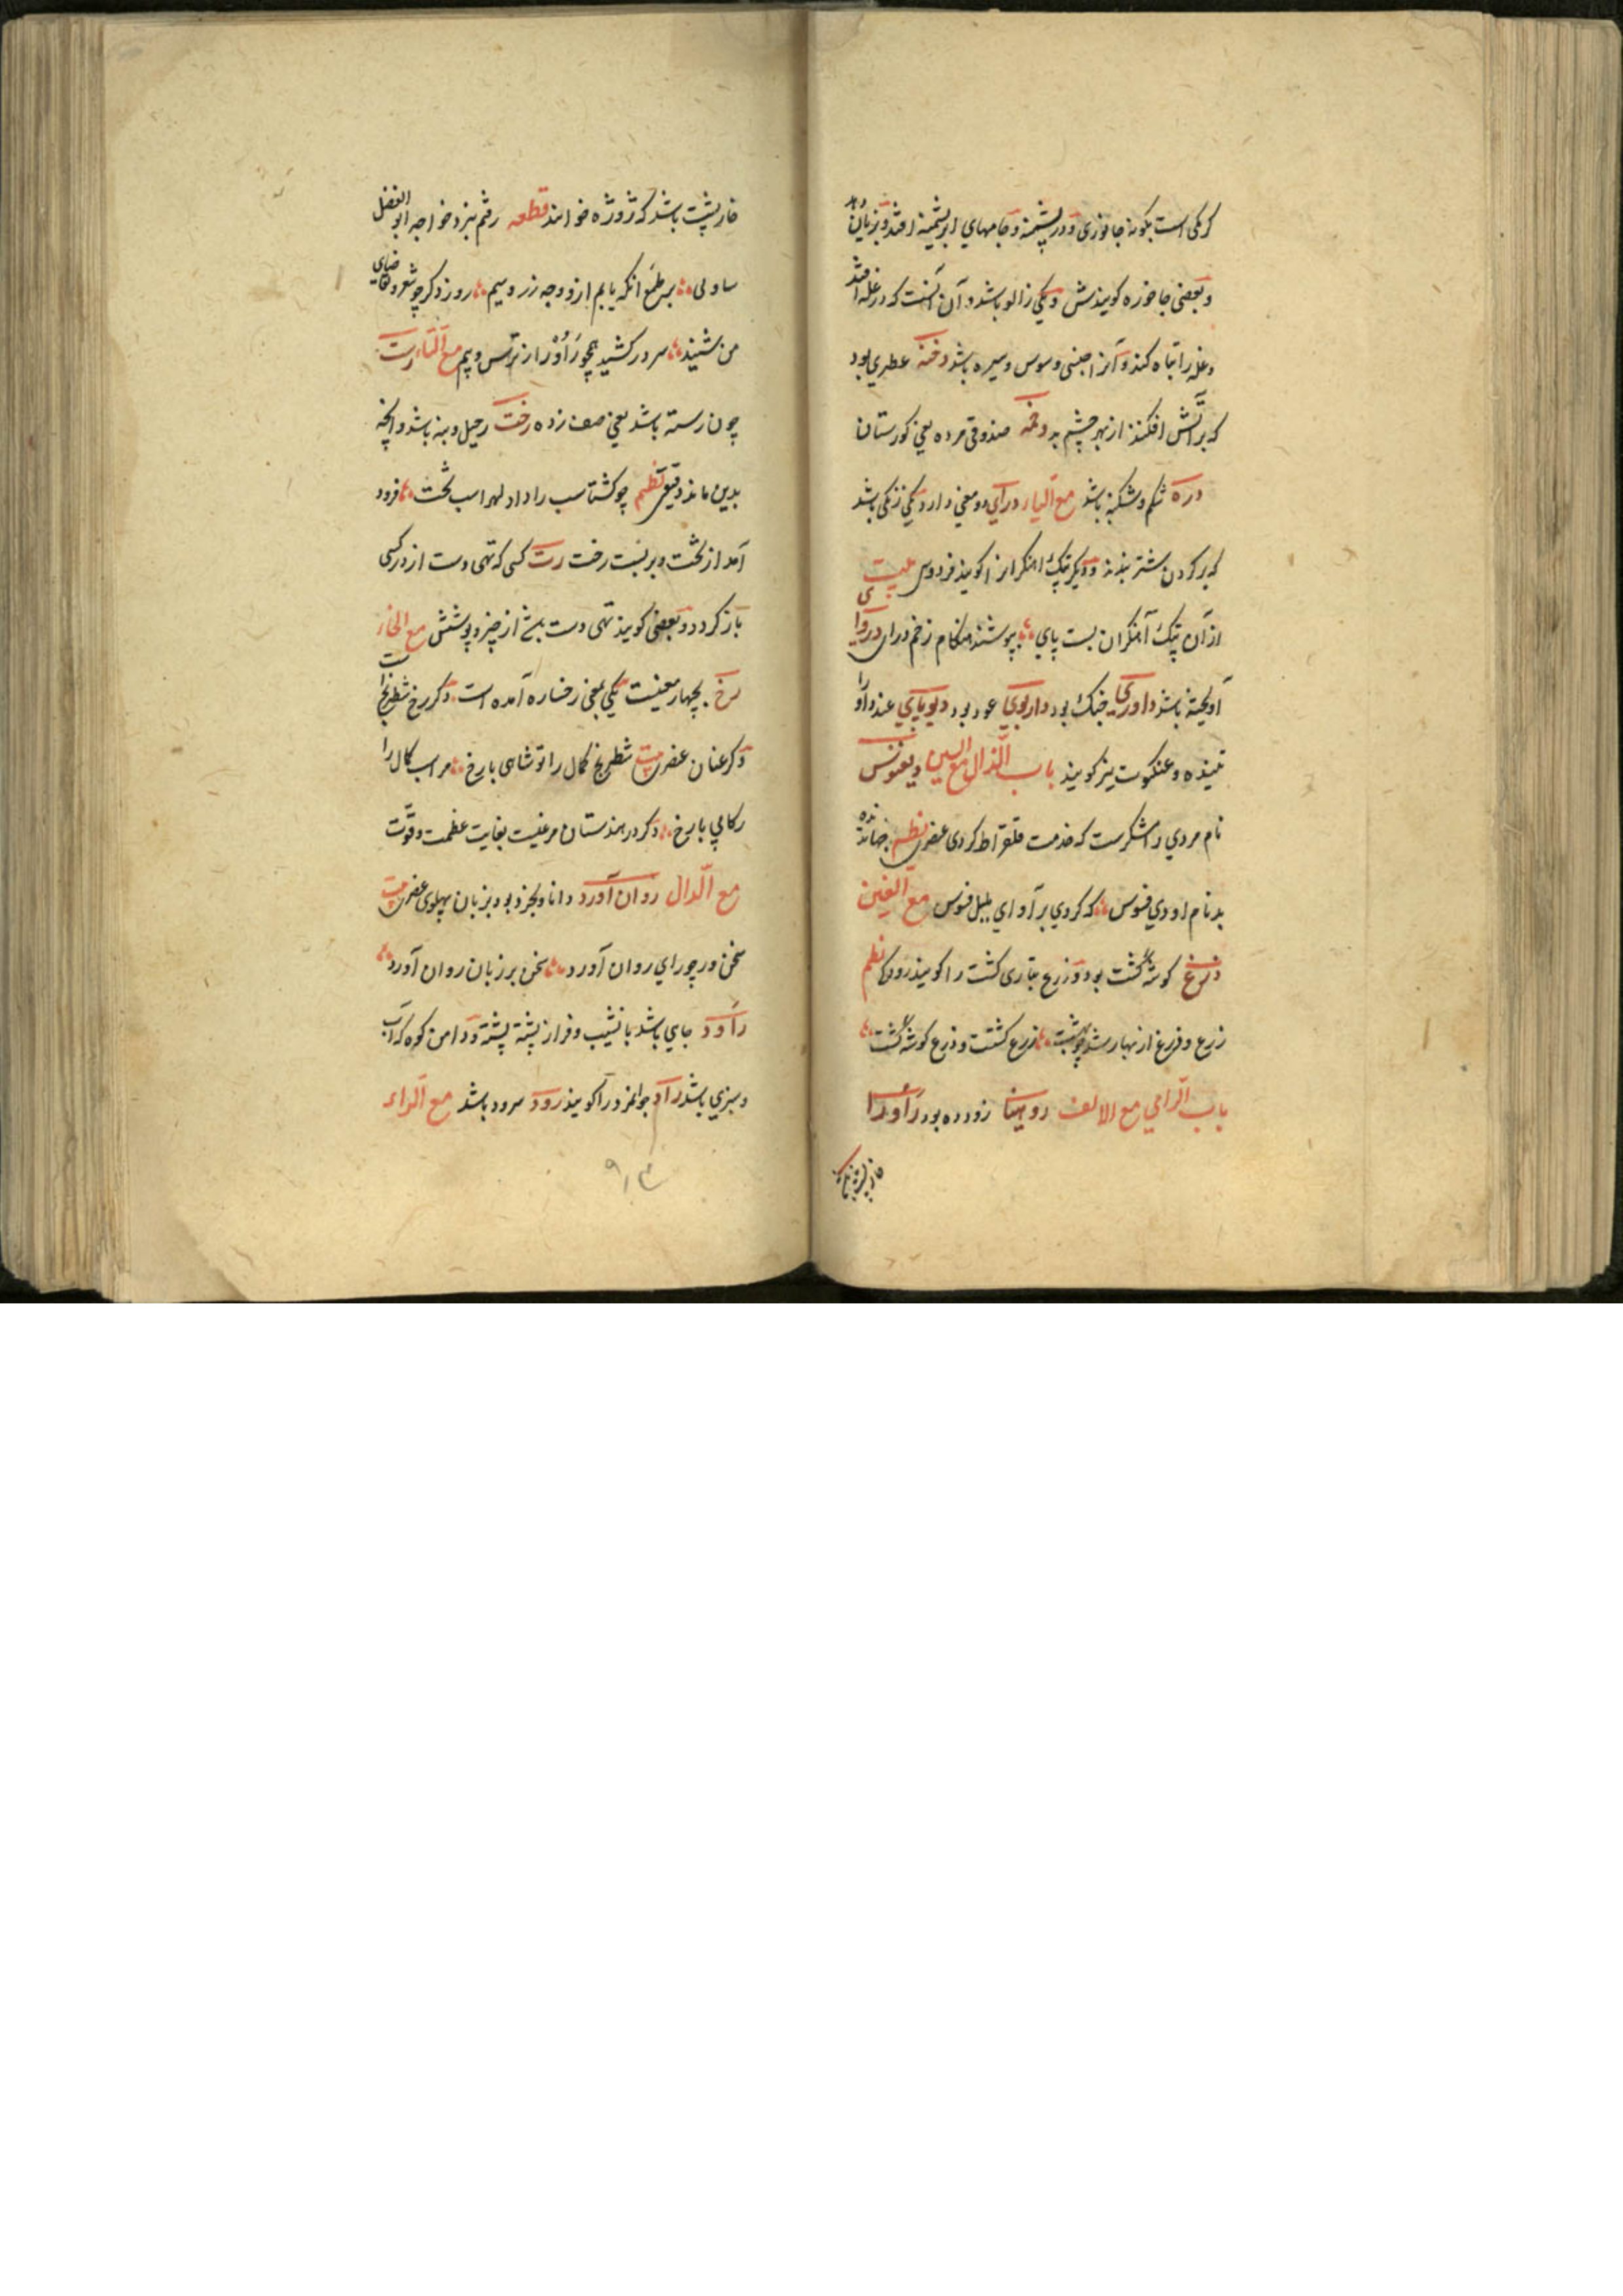 کرمکی است بکونه جانوزی و در پشمینه و جامهای ابریشمینه افتد و بزیان برد
و بعضی جاخوره کویندش و یکی زالو باشد و آن آنست که در غله افتد
و غله را تباه کند و آنرا جنبی و سوس و سیره باشد دخنه عطری بود
که بر آتش افکنند از بهر چشم بد دخمه صندوق مرده یعنی کورستان
دره شکم و شکنبه باشد مع الیاء درای دو معنی دارد یکی زنکی باشد
که بر کردن شتر بندند و دیکر پتک آهنکرانرا کویند فردوسی بیت
از آن پتک آهنکران پست پای بپوشند هنکام زخم درای دروای
آویخته باشد داوری جنک بود داربوی عود بود دیوپای عندوا را
تنیده و عنکبوت نیز کویند باب الذال مع السین ذیغنوس
نام مردی رامشکرست که خدمت فلقراط کردی عنصری نظم
بد نام او ذی فنوس که کردی بر آوای بلبل فنوس مع الغین
ذرغ کوشه کشت بود و زرع بتازی کشت را کویند رودکی نظم
زرع و ذرغ از بهار شد چو بهشت زرع کشتست و ذرغ کوشه کشت
باب الرای مع الالف روهینا زودده بود راورا
خارپشت باشد که ژوژه خوانند قطعه رفتم بنزد خواجه ابوالفضل
ساولی بر طمع آنکه یابم ازو وجه زر و سیم روز دکر چو شعر و تقاضای
من شنید سر در کشید همچو راورا از ترس و بیم مع التاء رست
چون رسته باشد یعنی صف زده رخت رحیل و بنه باشد و آنچه
بدین ماند دقیقی نظم چو کشتاسب را داد لهراسب تخت فرود
آمد از تخت و بر بست رخت رت کسی که تهی دست از در کسی
باز کردد و بعضی کویند تهی دست باشد از چیز و پوشش مع الخاء
رخ بچهار معنیست یکی بمعنی رخساره آمده است دکر رخ شطرنج است
دکر عنان عنصری بیت شطرنج کمال را تو شاهی یا رخ مر اسب کمال را
رکابی یا رخ دکر در هندستان مرغیست بغایت عظمت و قوت
مع الدال روان آورد دانا و بخرد بود بزبان پهلوی عنصری بیت
سخن ور چو رای روان آورد سخن بر زبان روان آورد
راود جای باشد با نشیب و فراز پشته پشته و دامن کوه که آب
و سبزی باشد راد جوانمرد را کویند رود سرود باشد مع الراء